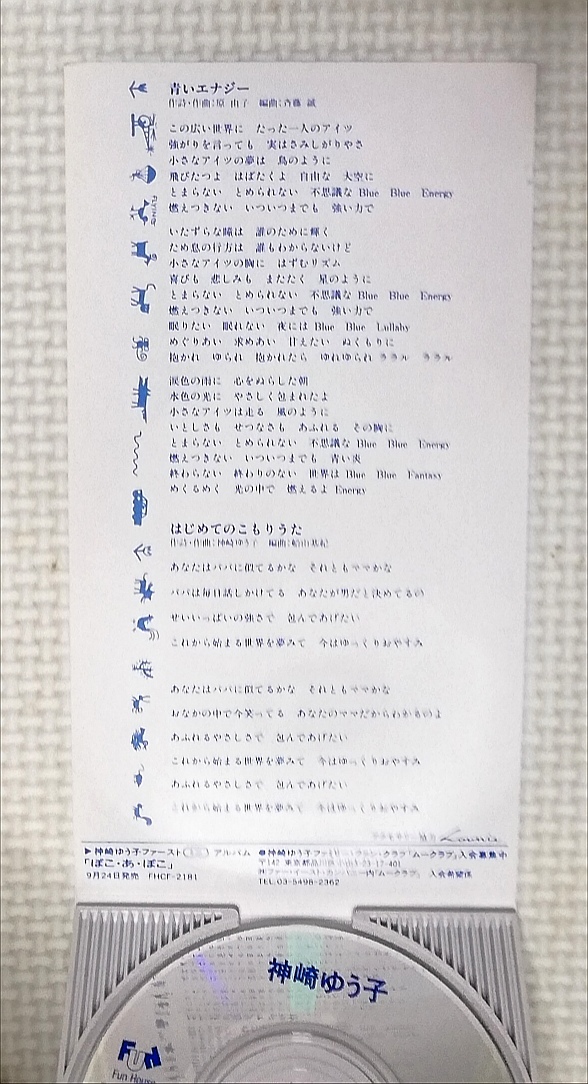 青いエナジー
作詩・作曲:原 由子 編曲:斉藤 誠
この広い世界に たった一人のアイツ
強がりを言っても 実はさみしがりやさ
小さなアイツの夢は 鳥のように
飛びたつよ はばたくよ 自由な 大空に
とまらない とめられない 不思議な Blue Blue Energy
燃えつきない いついつまでも 強い力で
いたずらな瞳は 誰のために輝く
ため息の行方は 誰もわからないけど
小さなアイツの胸に はずむリズム
喜びも 悲しみも またたく 星のように
とまらない とめられない 不思議な Blue Blue Energy
燃えつきない いついつまでも 強い力で
眠りたい 眠れない 夜には Blue Blue Lullaby
めぐりあい 求めあい 甘えたい ぬくもりに
抱かれ ゆられ 抱かれたら ゆれゆられ ラララ ラララ
涙色の雨に 心をぬらした朝
水色の光に やさしく包まれたよ
小さなアイツは走る 風のように
いとしさも せつなさも あふれる その胸に
とまらない とめられない 不思議な Blue Blue Energy
燃えつきない いついつまでも 青い炎
終わらない 終わりのない 世界は Blue Blue Fantasy
めくるめく 光の中で 燃えるよ Energy
はじめてのこもりうた
作詩・作曲:神崎ゆう子 編曲:船山基紀
あなたはパパに似てるかな それともママかな
パパは毎日話しかけてる あなたが男だと決めてるの
せいいっぱいの強さで 包んであげたい
これから始まる世界を夢みて 今はゆっくりおやすみ
あなたはパパに似てるかな それともママかな
おなかの中で今笑ってる あなたのママだからわかるのよ
あふれるやさしさで 包んであげたい
これから始まる世界を夢みて 今はゆっくりおやすみ
あふれるやさしさで 包んであげたい
これから始まる世界を夢みて 今はゆっくりおやすみ
▶神崎ゆう子ファースト アルバム
「ぽこ・あ・ぽこ」
9月24日発売 FHCF-2181
●神崎ゆう子ファミリー・クラブ「ムークラブ」入会募集中
〒142 東京都品川区
㈱ファー・イースト・カンパニー内「ムークラブ」 入会希望係
TEL.03-5498-2362
神崎ゆう子
FUN
Fun House